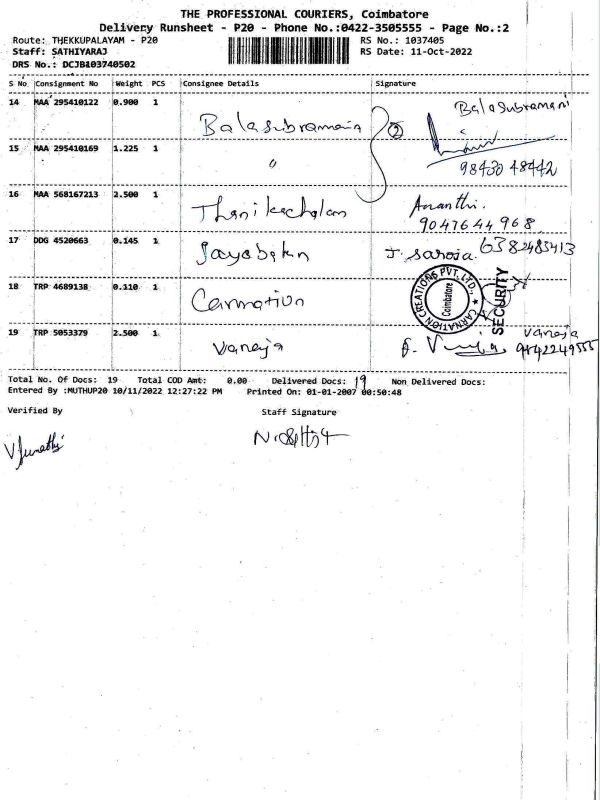 THE PROFESSIONAL COURIERS, Coimbatore
Delivery Runsheet - P20 - Phone No.:0422-3505555 - Page No.:2
Route: THEKKUPALAYAM - P20 RS No.: 1037405
Staff: SATHIYARAJ RS Date: 11-Oct-2022
DRS No.: DCJB103740502
S No Consignment No Weight PCS Consignee Details Signature
14 MAA 295410122 0.900 1 Balasubramain (2) Balasubramani
15 MAA 295410169 1.225 1 " 98430 48442
16 MAA 568167213 2.500 1 Thanikachalam Ananthi.
9047644968
17 DDG 4520663 0.145 1 Jayabalan J. saroja 6382483413
18 TRP 4689138 0.110 1 Carnation CARNATION CREATIONS PVT. LTD., Coimbatore SECURITY
19 TRP 5053379 2.500 1 Vanaja Vanaja
9842249555
Total No. Of Docs: 19 Total COD Amt: 0.00 Delivered Docs: 19 Non Delivered Docs:
Entered By :MUTHUP20 10/11/2022 12:27:22 PM Printed On: 01-01-2007 00:50:48
Verified By Staff Signature